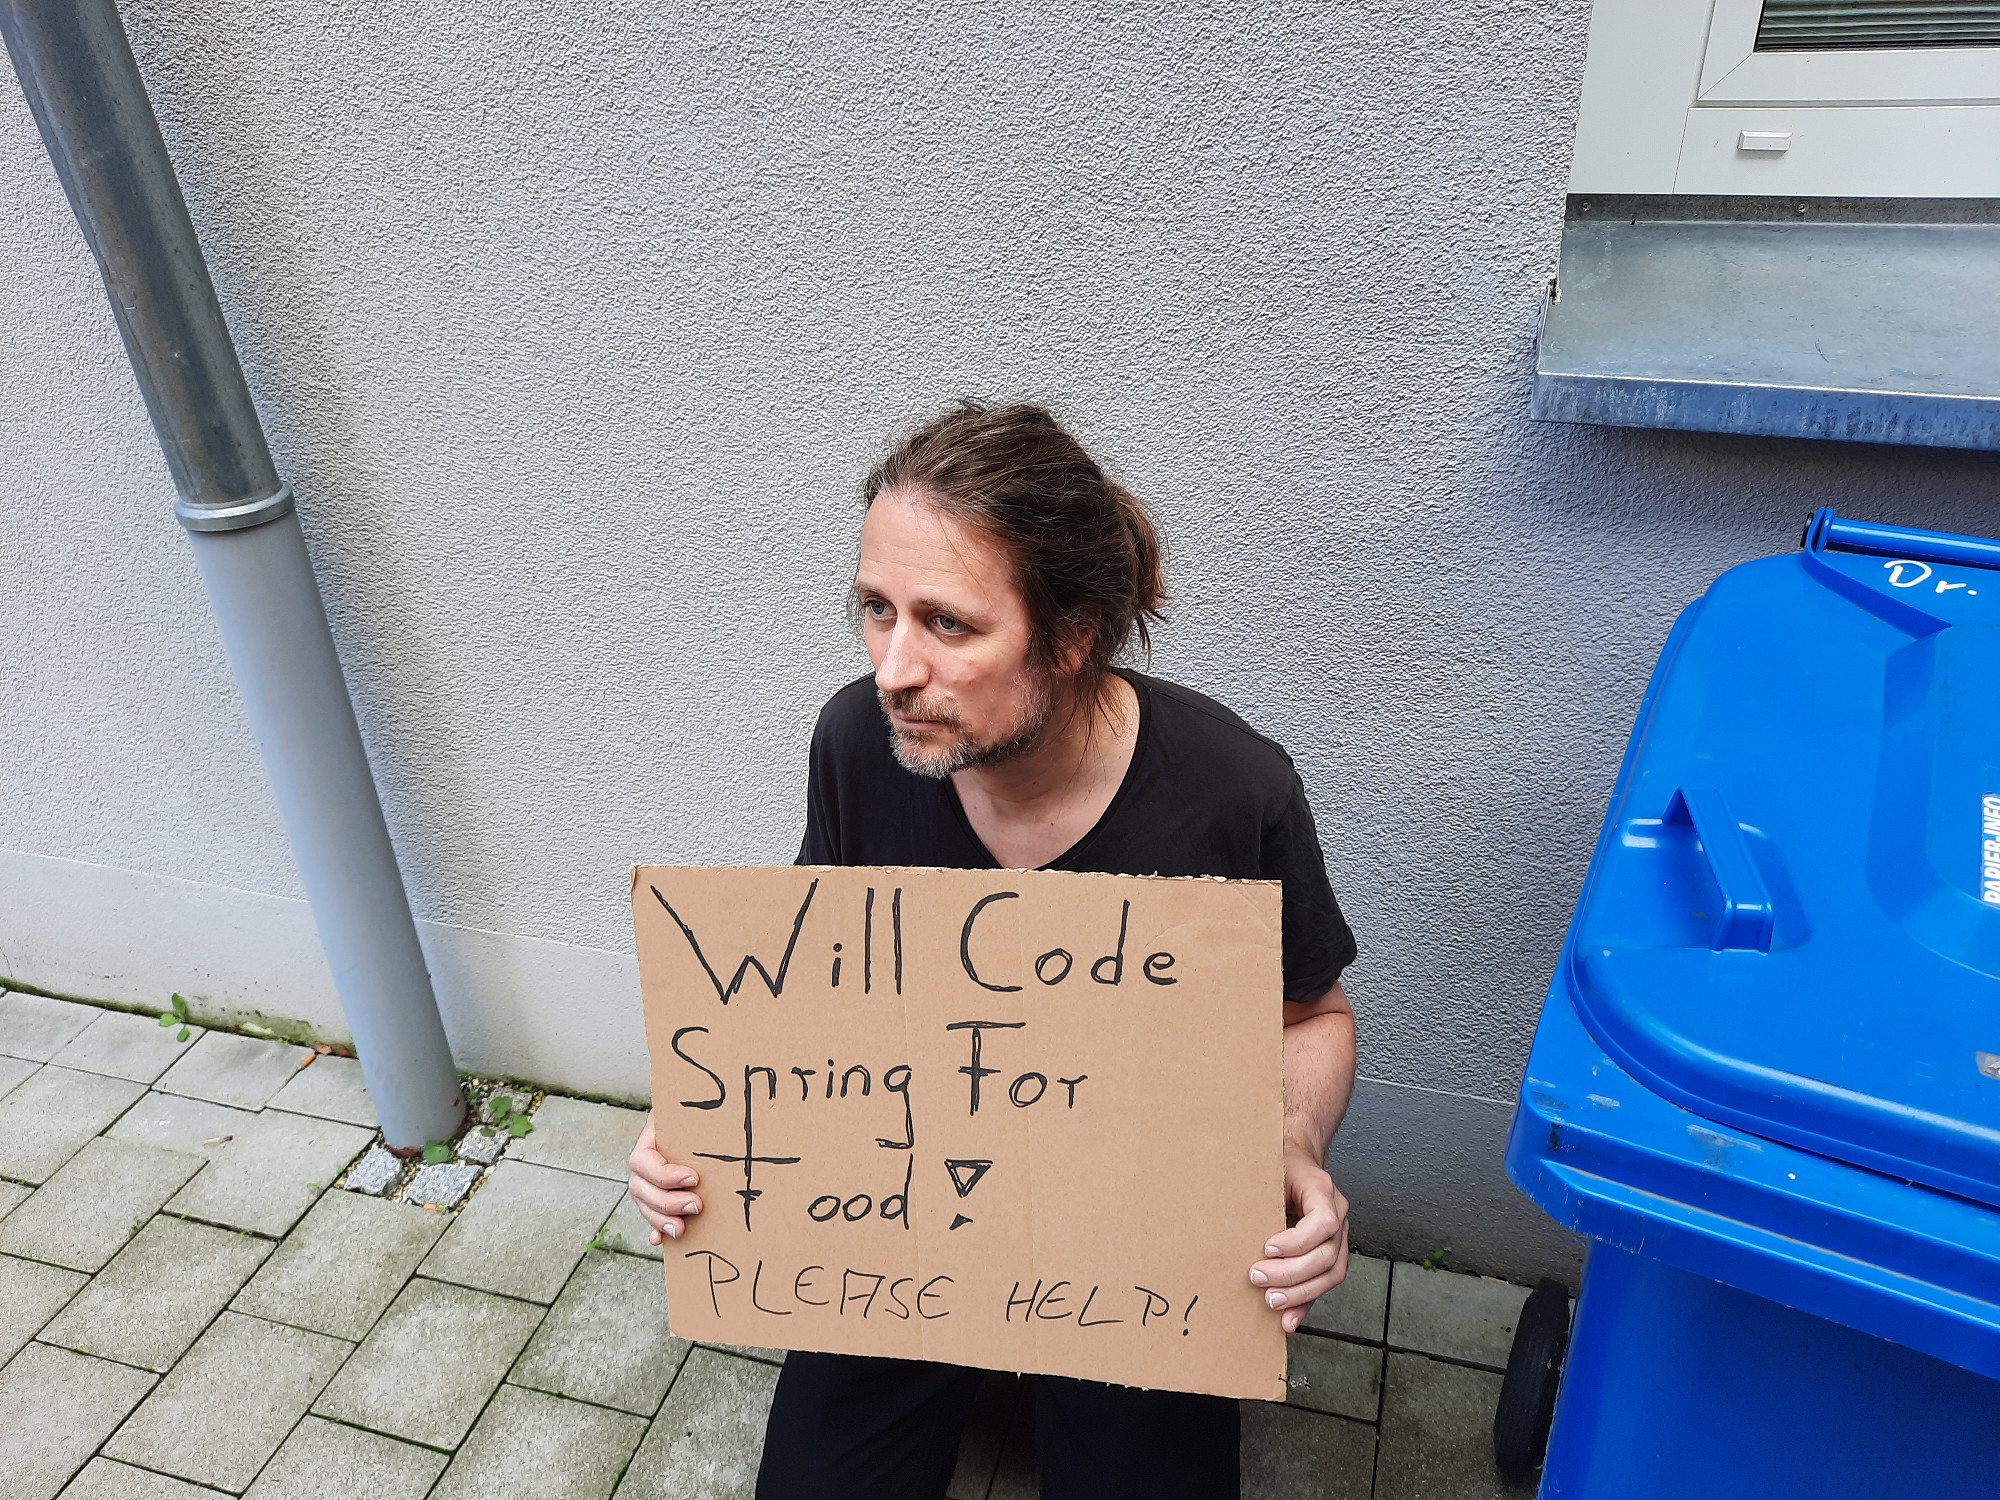 Will Code
Spring For
Food!
PLEASE HELP!
Dr.
PAPIER-INFO